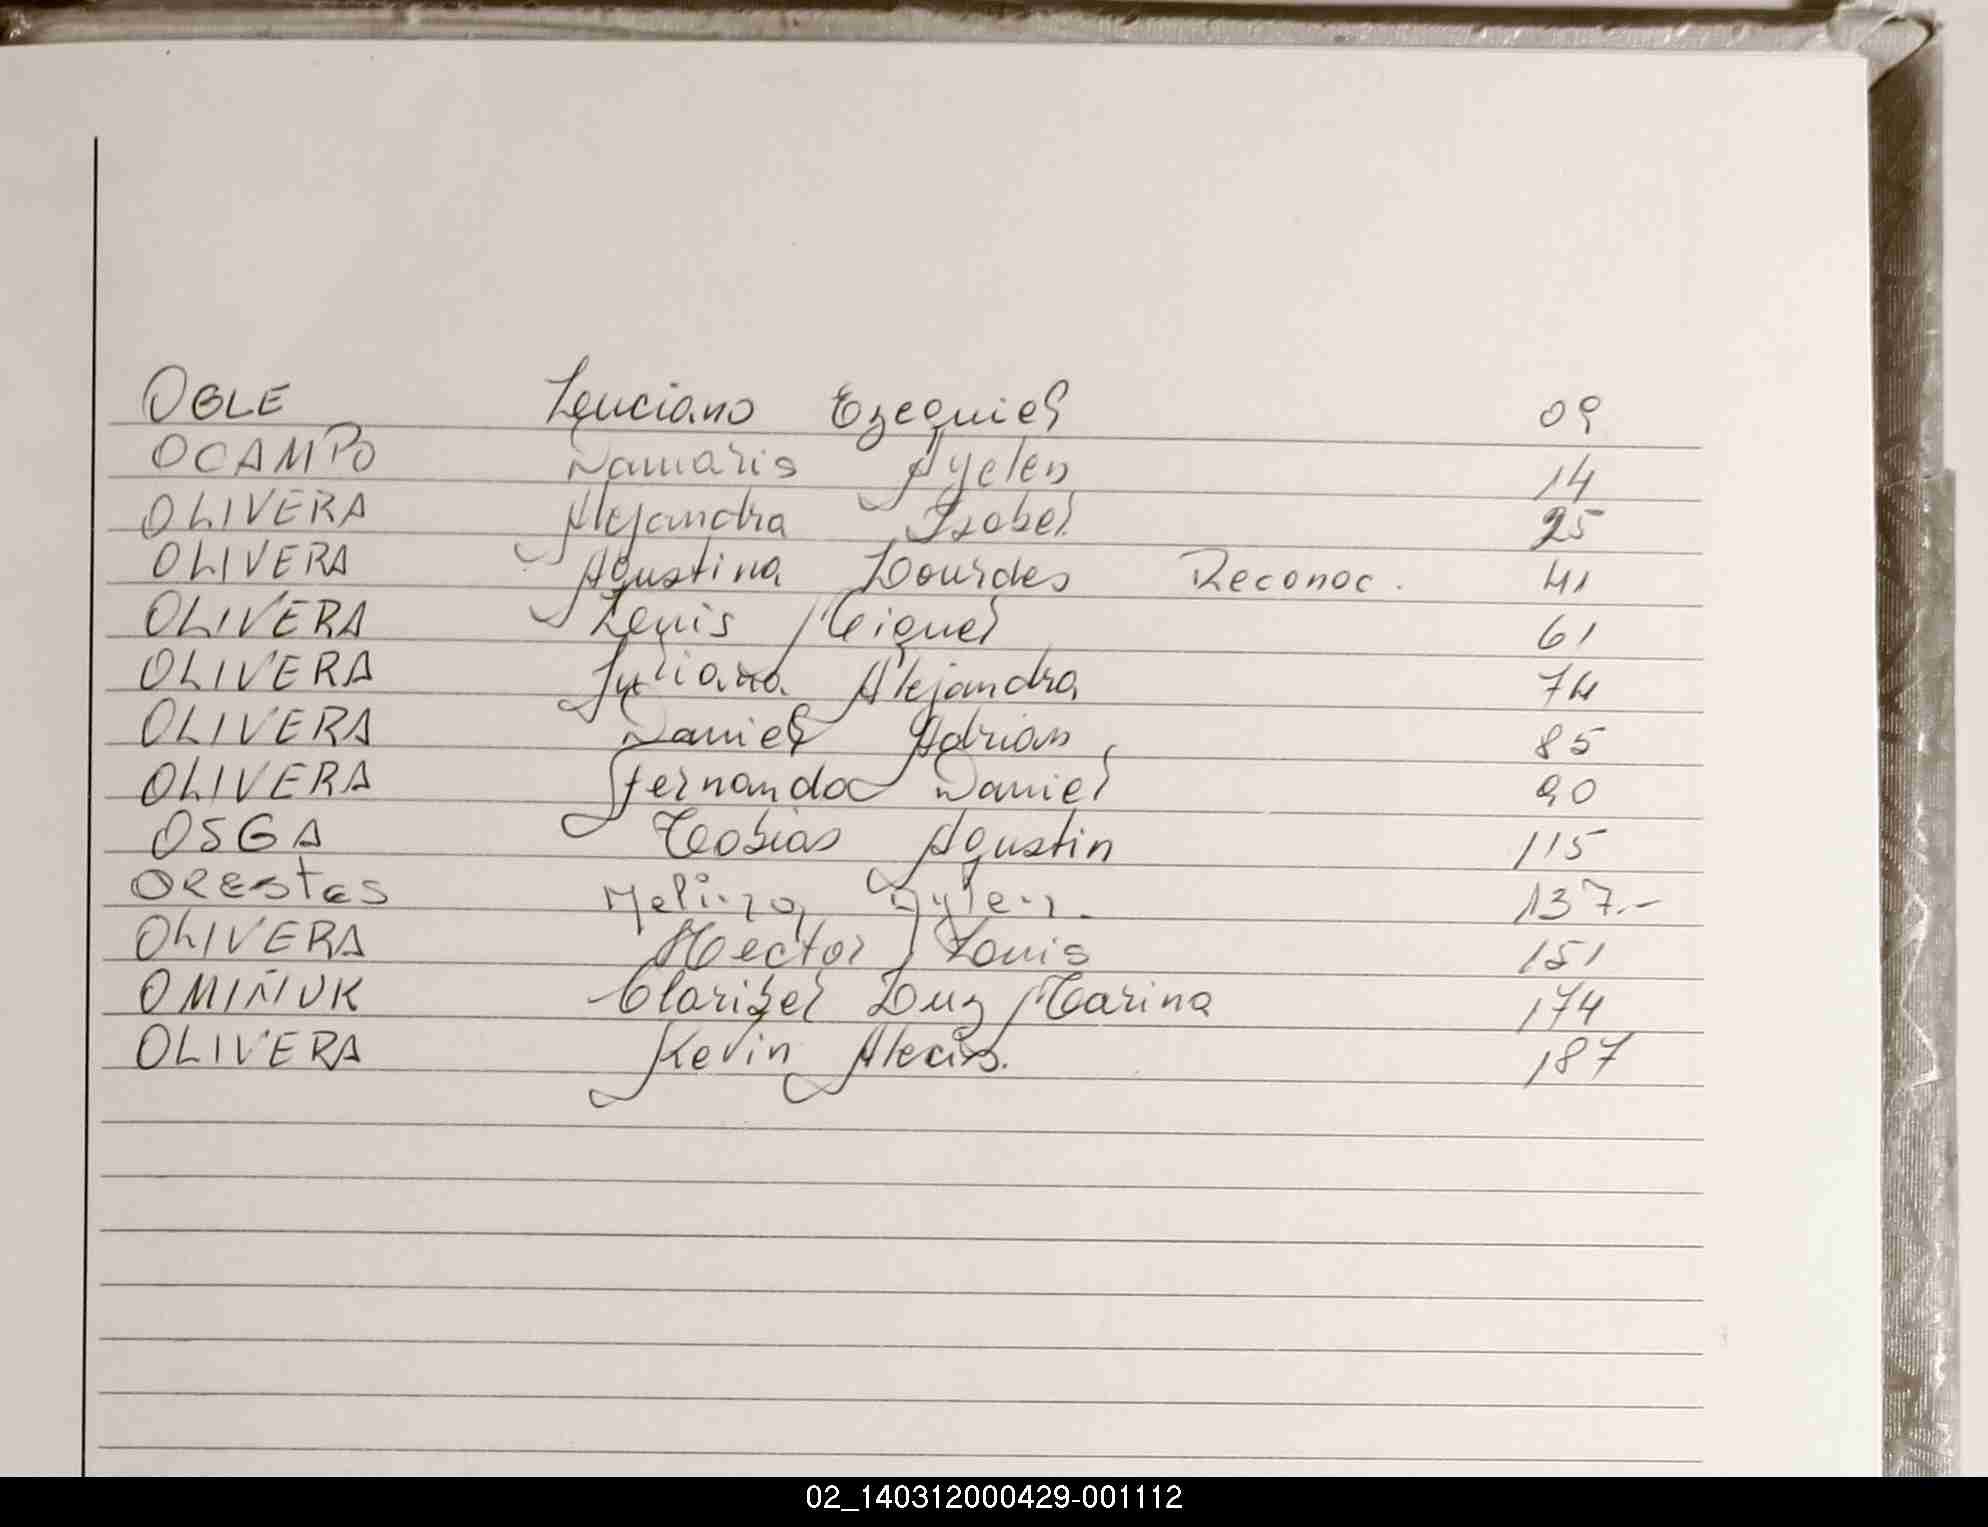 OBLE Luciano Ezequiel 09
OCAMPO Damaris Ayelen 14
OLIVERA Alejandra Isabel 25
OLIVERA Agustina Lourdes Reconoc. 41
OLIVERA Luis Miguel 61
OLIVERA Juliana Alejandra 74
OLIVERA Daniel Adrian 85
OLIVERA Fernando Daniel 90
OSGA Tobias Agustin 115
ORESTES Melisa Aylen. 137.-
OLIVERA Hector Louis 151
OMIÑUK Claribel Luz Marina 174
OLIVERA Kevin Alexis. 187
02_140312000429-001112